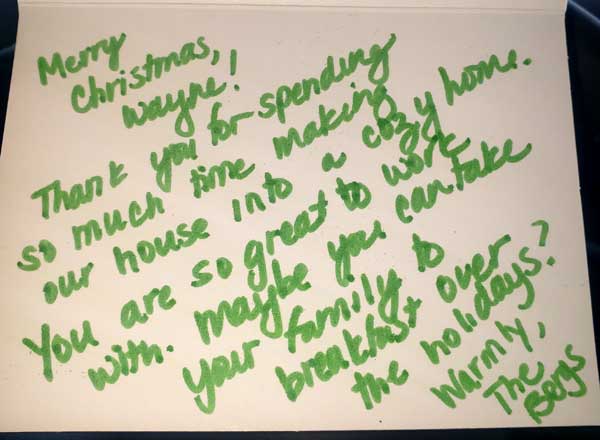 Merry
Christmas,
Wayne!
Thank you for spending
so much time making
our house into a cozy home.
You are so great to work
with. Maybe you can take
your family to
breakfast over
the holidays?
Warmly,
The
Bergs